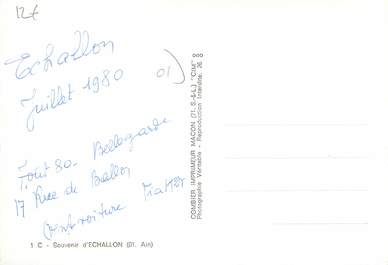 12€
Echallon
Juillet 1980 01)
Tout 80. Bellegarde
17 Place de Ballon
1 C - Souvenir d'ECHALLON (01. Ain)
COMBIER IMPRIMEUR MACON (71. S.-&-L.) "CIM" 000
Photographie Véritable - Reproduction Interdite. 36